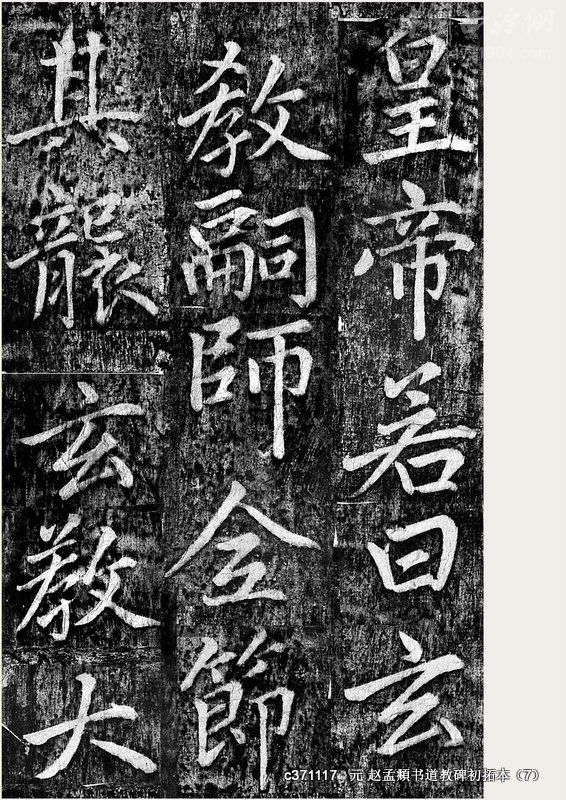 皇帝若曰玄
教嗣師仝節
其襲玄教大
c371117 元 赵孟頫书道教碑初拓本（7）